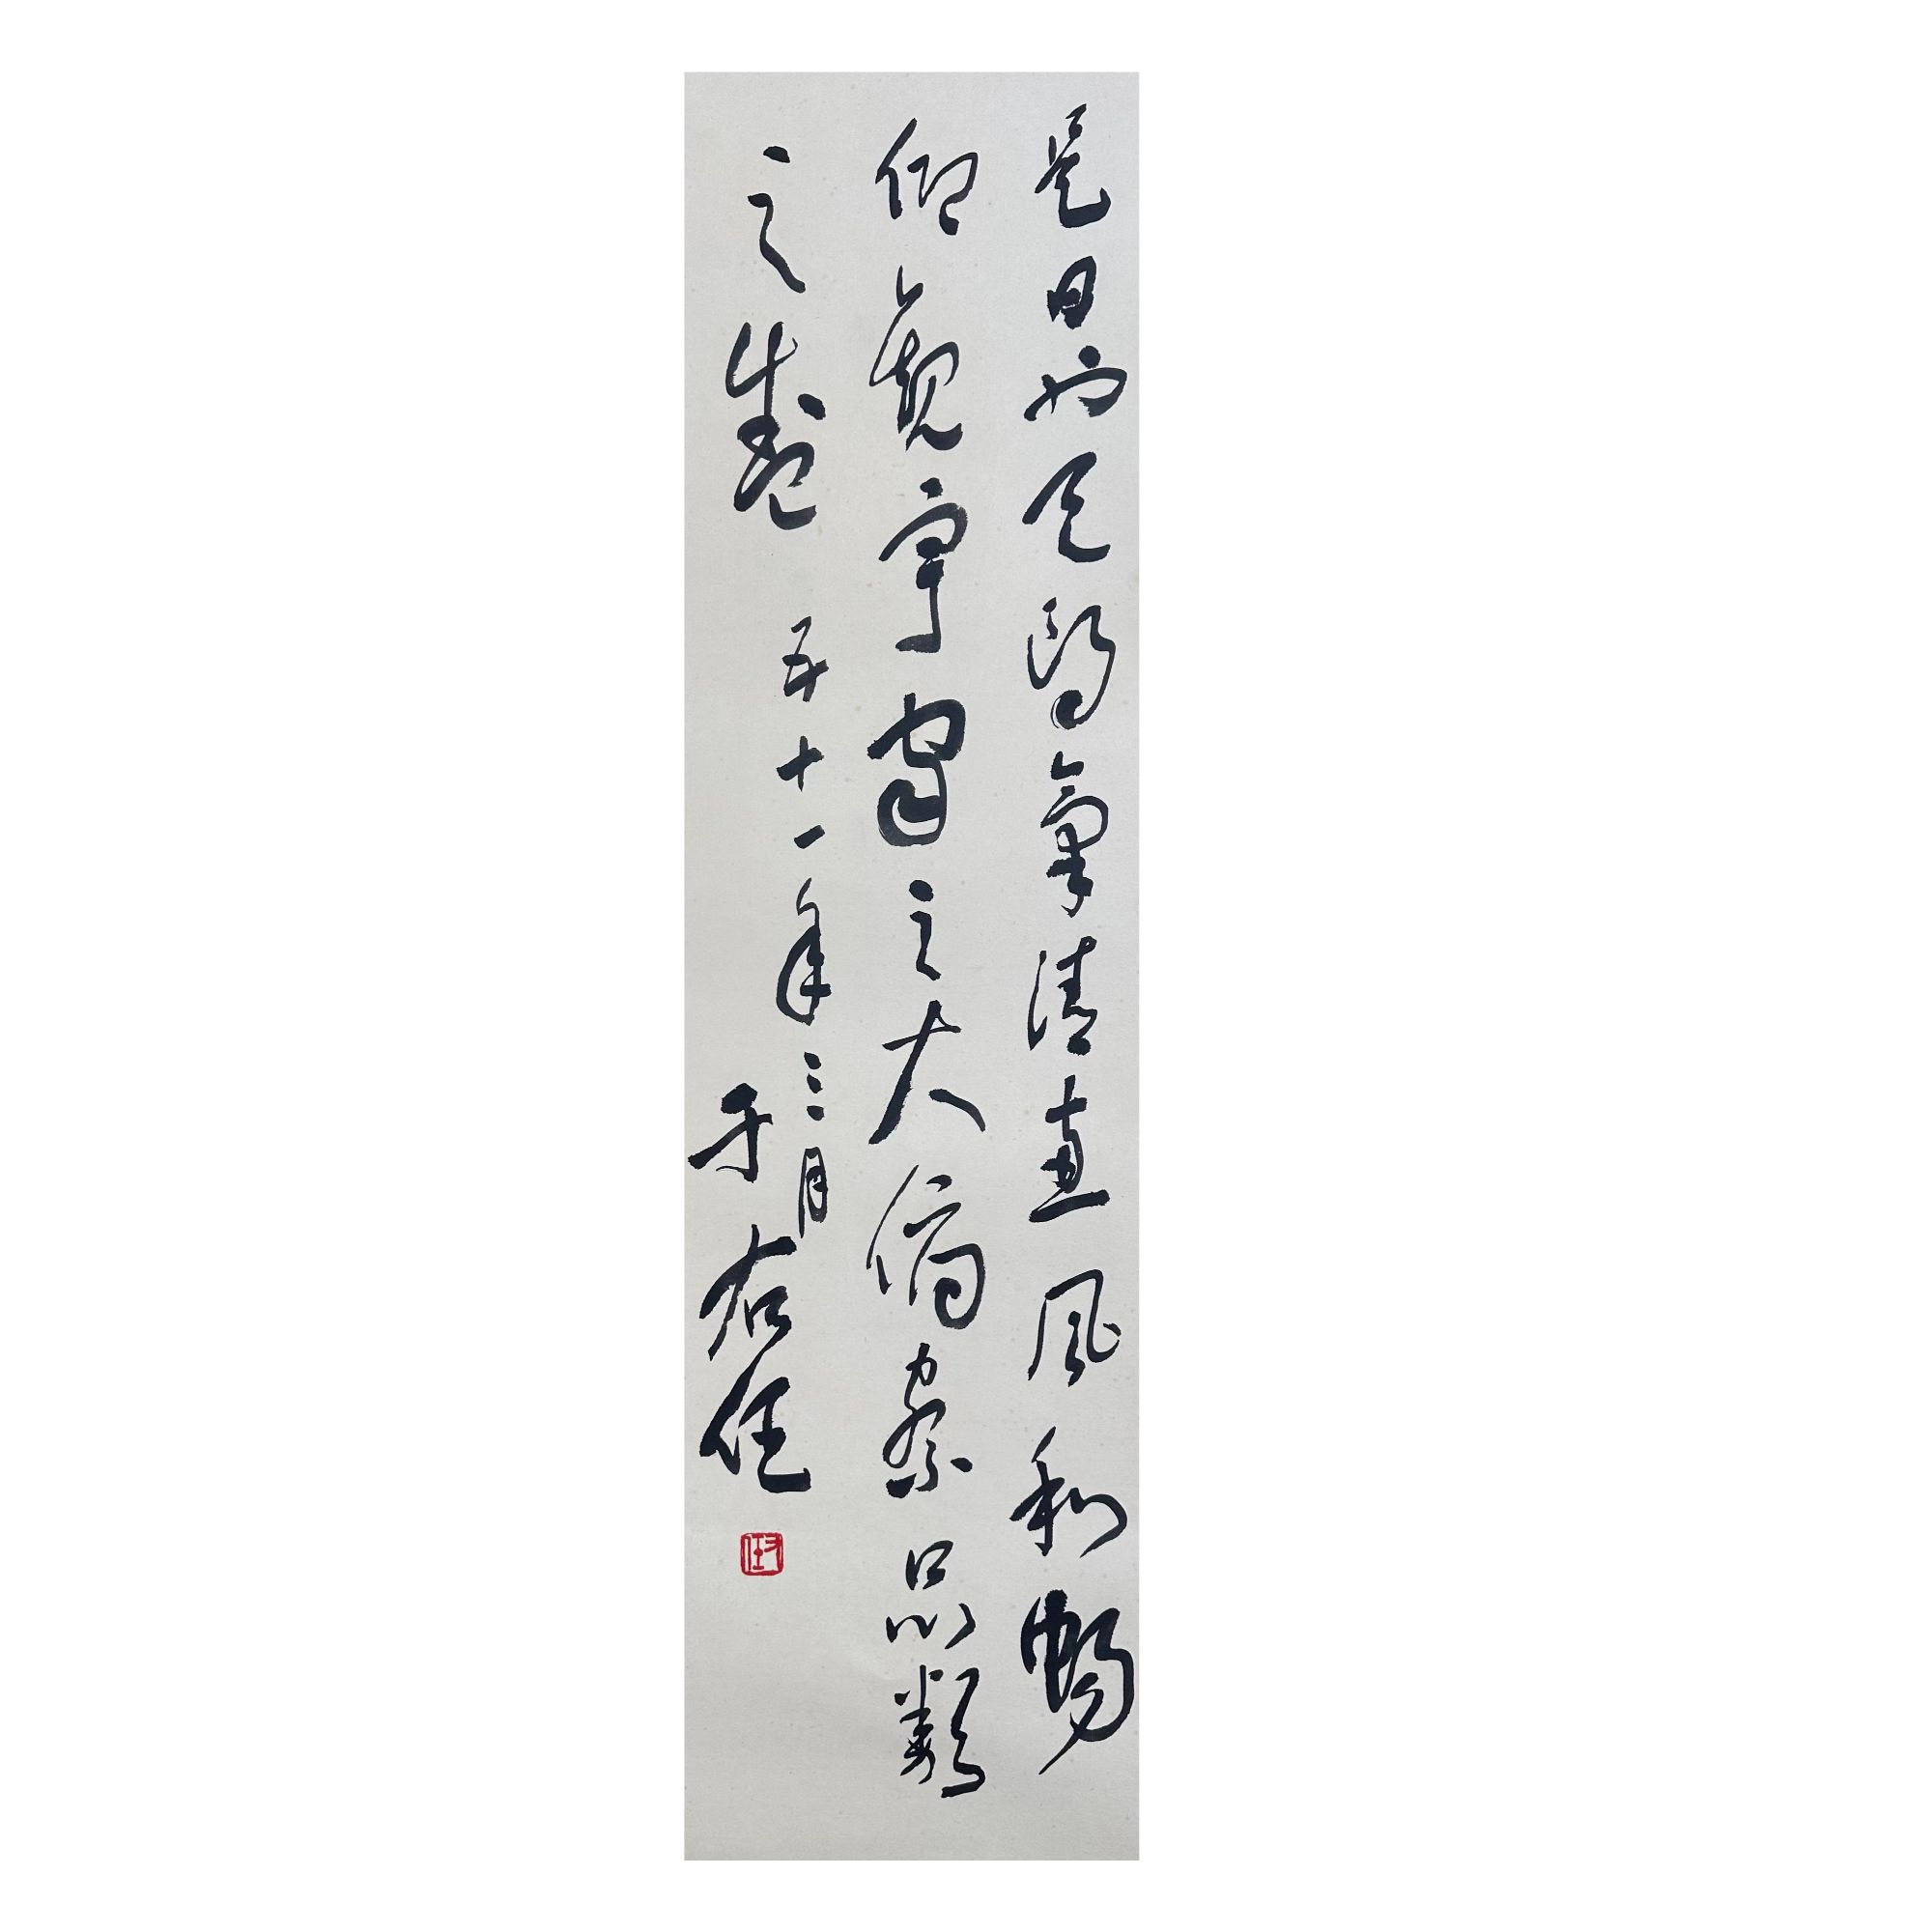 是日也天朗氣清惠風和暢
仰觀宇宙之大俯察品類
之盛
五十一年三月
于右任
右任